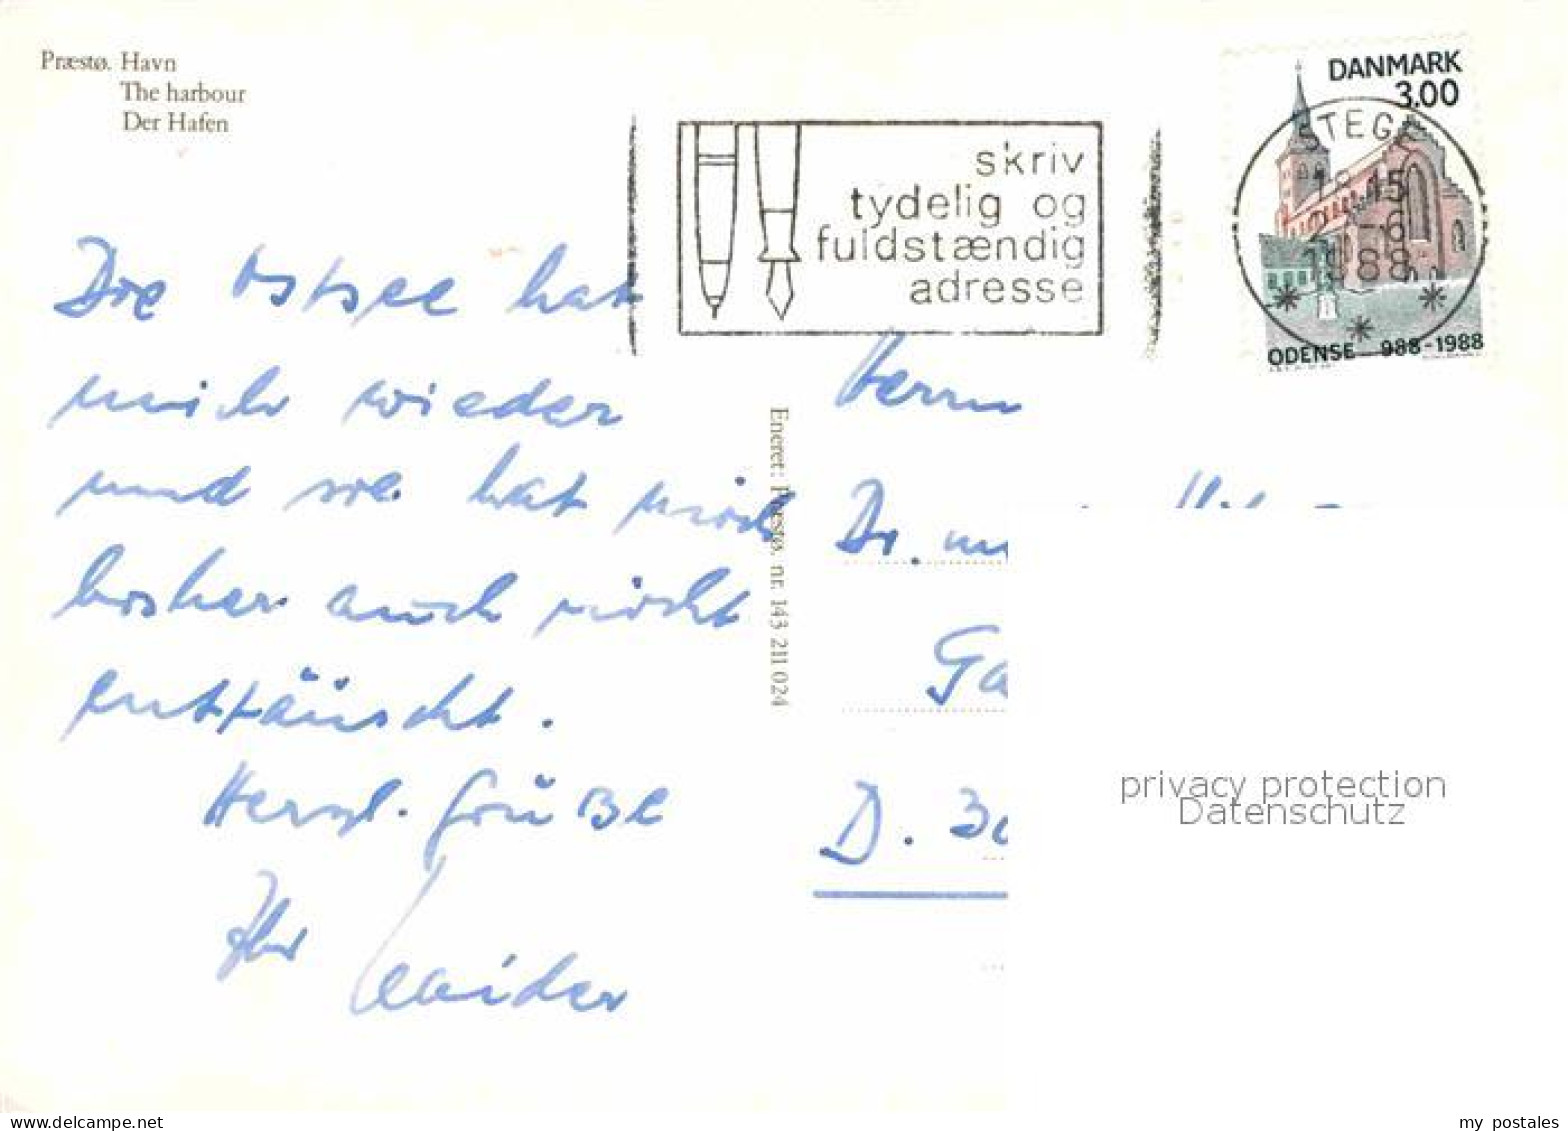 Præstø. Havn
The harbour
Der Hafen
skriv
tydelig og
fuldstændig
adresse
DANMARK
3.00
STEGE
1988
ODENSE 988-1988
Die Ostsee hat
mich wieder
und sie hat mich
bisher auch nicht
enttäuscht.
Herzl. Grüße
Ihr
Eneret: Præstø. nr. 143 211 024
Herrn
Dr.
Ga
D.
privacy protection
Datenschutz
www.delcampe.net
my postales